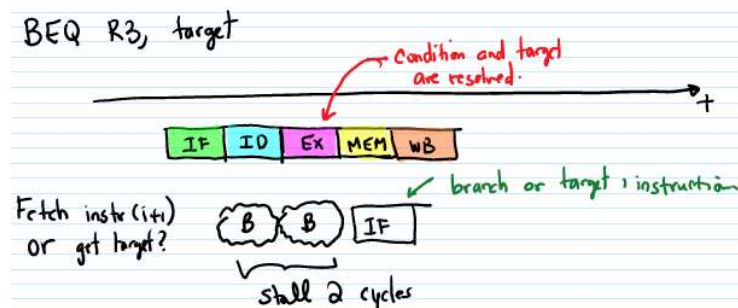 BEQ R3, target
Condition and target
are resolved.
t
IF ID EX MEM WB
branch or target, instruction
Fetch instr(i+1)
or get target?
B B IF
stall 2 cycles